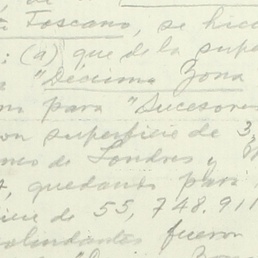 Toscano, se hic
: (a) que de la supe
"Decima Zona
para "Sucesores
on superficie de 3,
de Londres y
, quedando para
de 55, 748.911
colindantes fueron